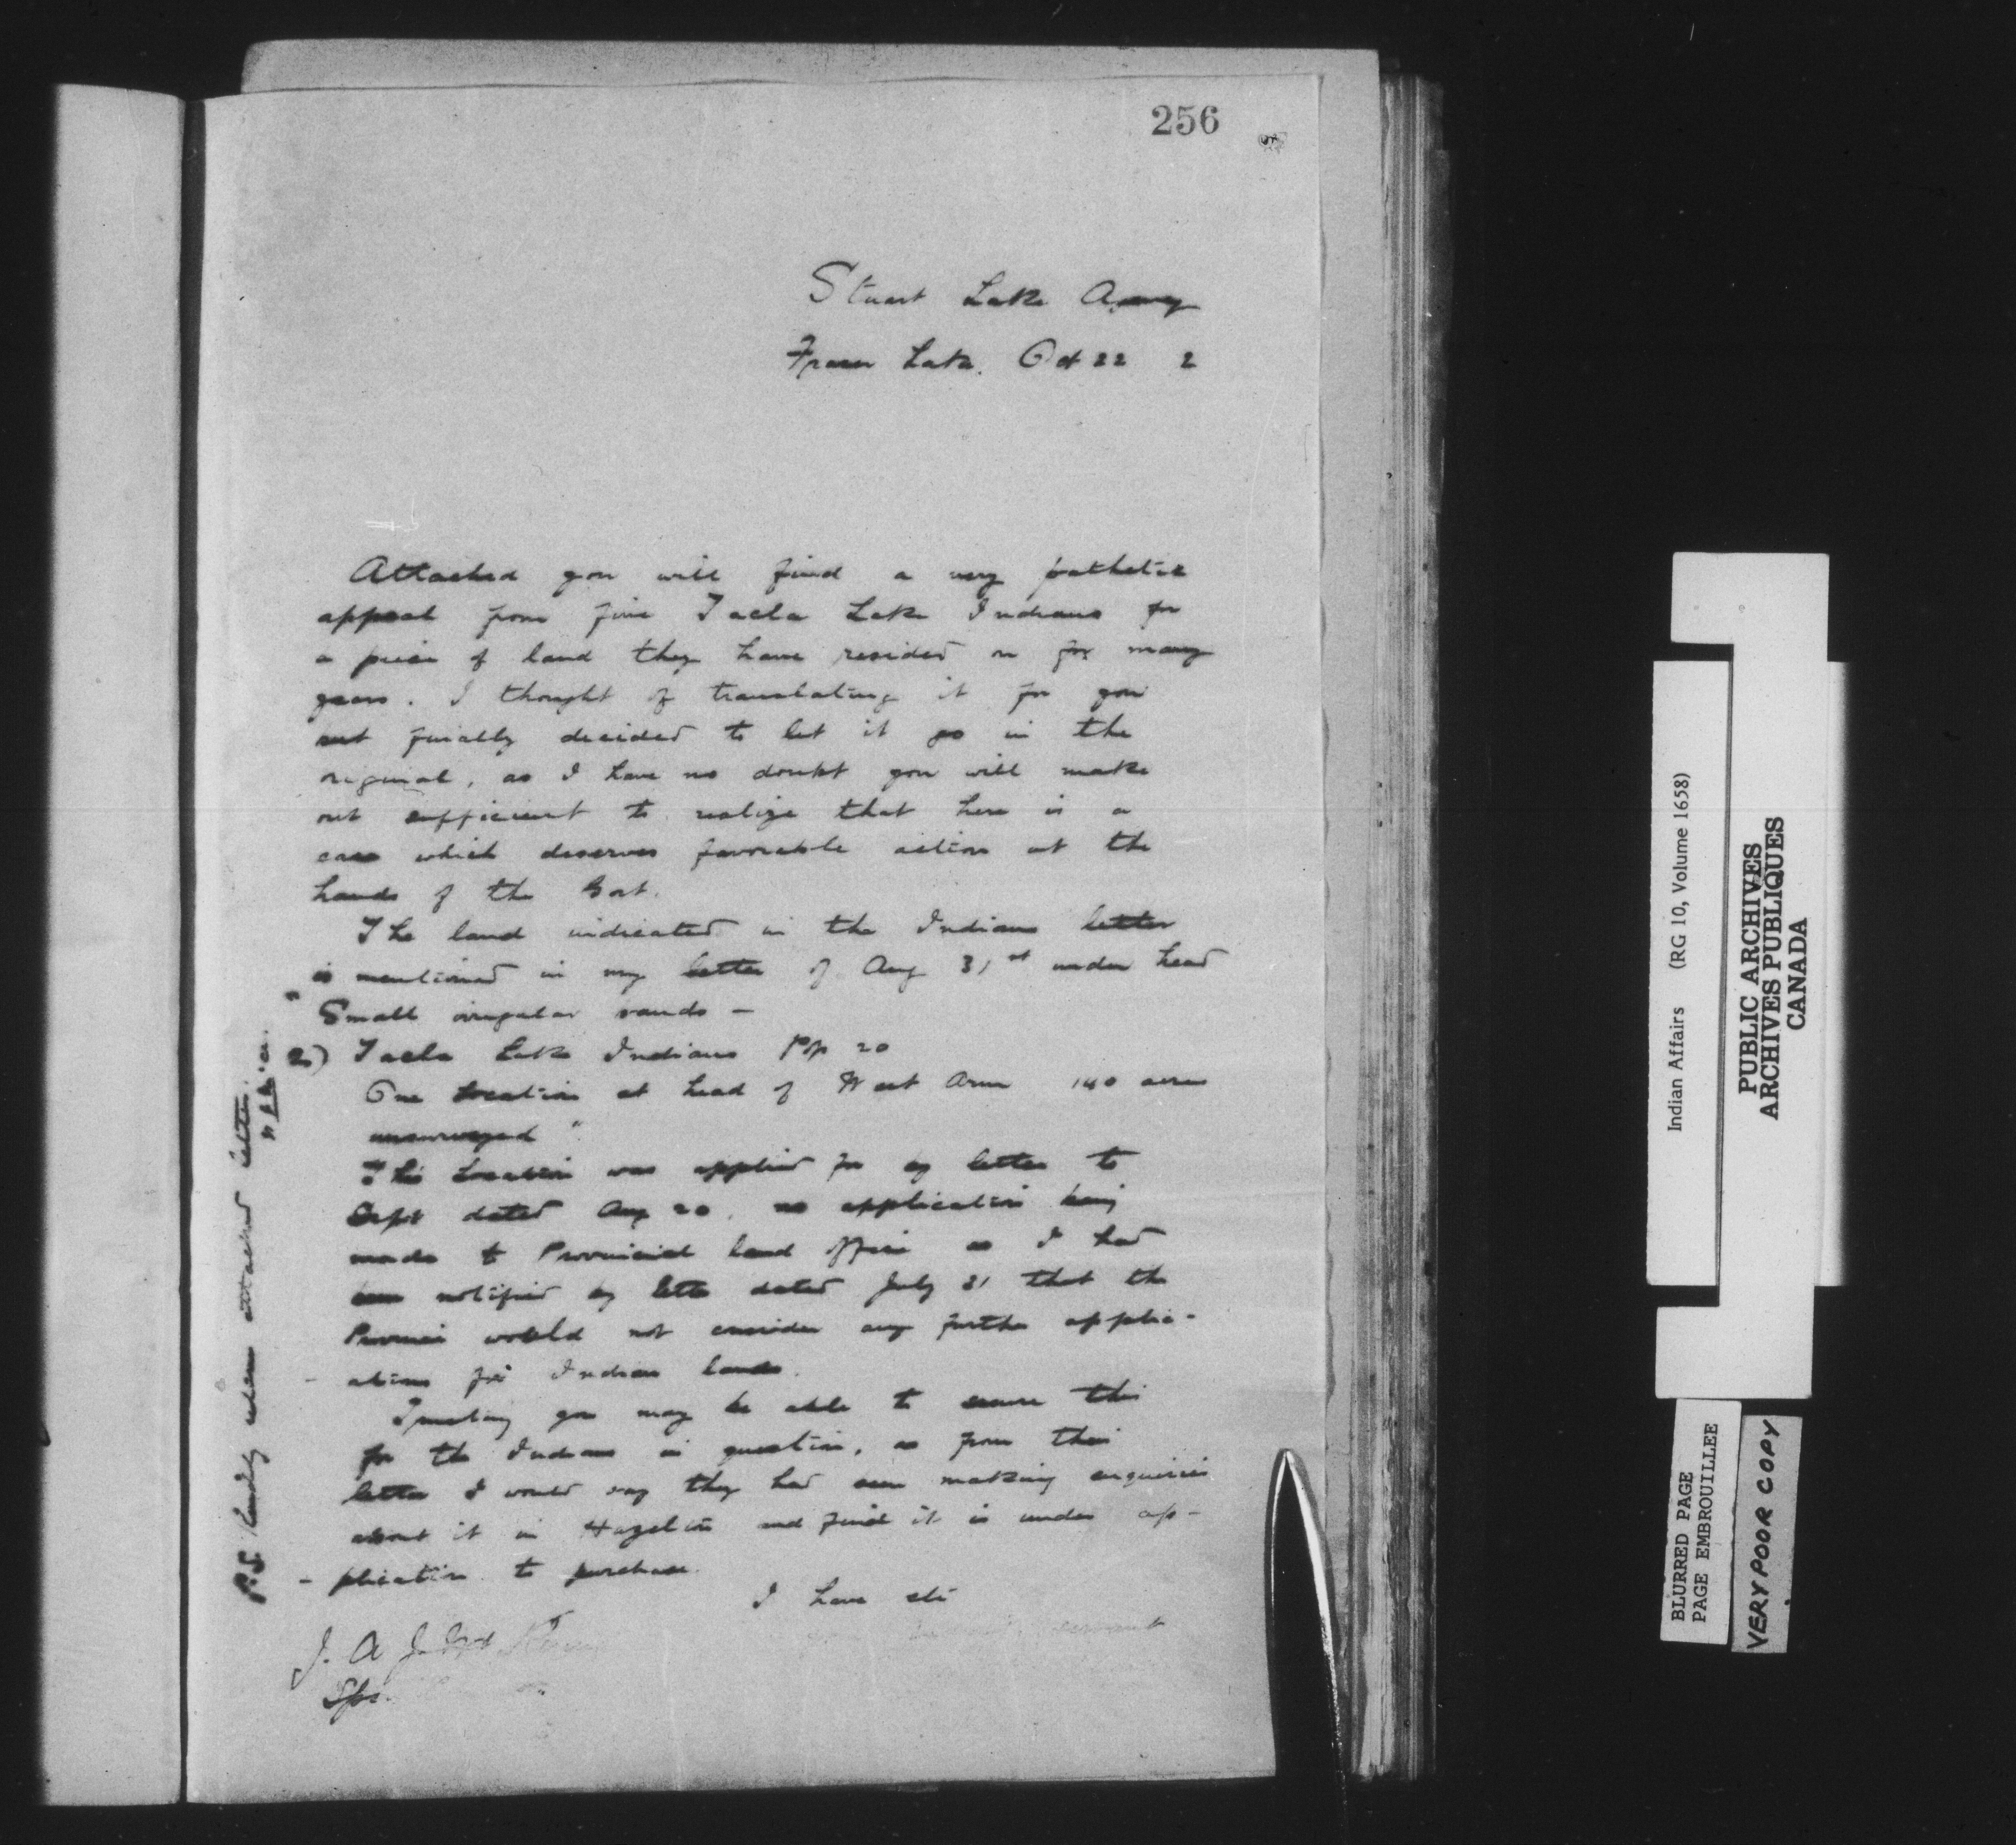 256
Stuart Lake Agency
Fraser Lake. Oct 22 2
Attached you will find a very pathetic
appeal from five Tacla Lake Indians for
a piece of land they have resided on for many
years. I thought of translating it for you
but finally decided to let it go in the
original, as I have no doubt you will make
out sufficient to realize that here is a
case which deserves favorable action at the
hands of the Govt.
The land indicated in the Indians letter
is mentioned in my letter of Aug 31st under head
" Small irregular bands -
2) Tacla Lake Indians Pop 20
One location at head of West Arm 140 acres
unsurveyed "
This location was applied for by letter to
Dept dated Aug 20. no application being
made to Provincial land office as I had
been notified by letter dated July 31 that the
Province would not consider any further applic-
- ations for Indian lands.
Trusting you may be able to secure this
for the Indians in question, as from their
letter I would say they had been making enquiries
about it in Hazelton and find it is under ap-
- plication to purchase.
I have etc
servant
J. A. J. McKenna
Spc.
P.S. Kindly return attached letter.
Indian Affairs (RG 10, Volume 1658)
PUBLIC ARCHIVES
ARCHIVES PUBLIQUES
CANADA
BLURRED PAGE
PAGE EMBROUILLEE
VERY POOR COPY